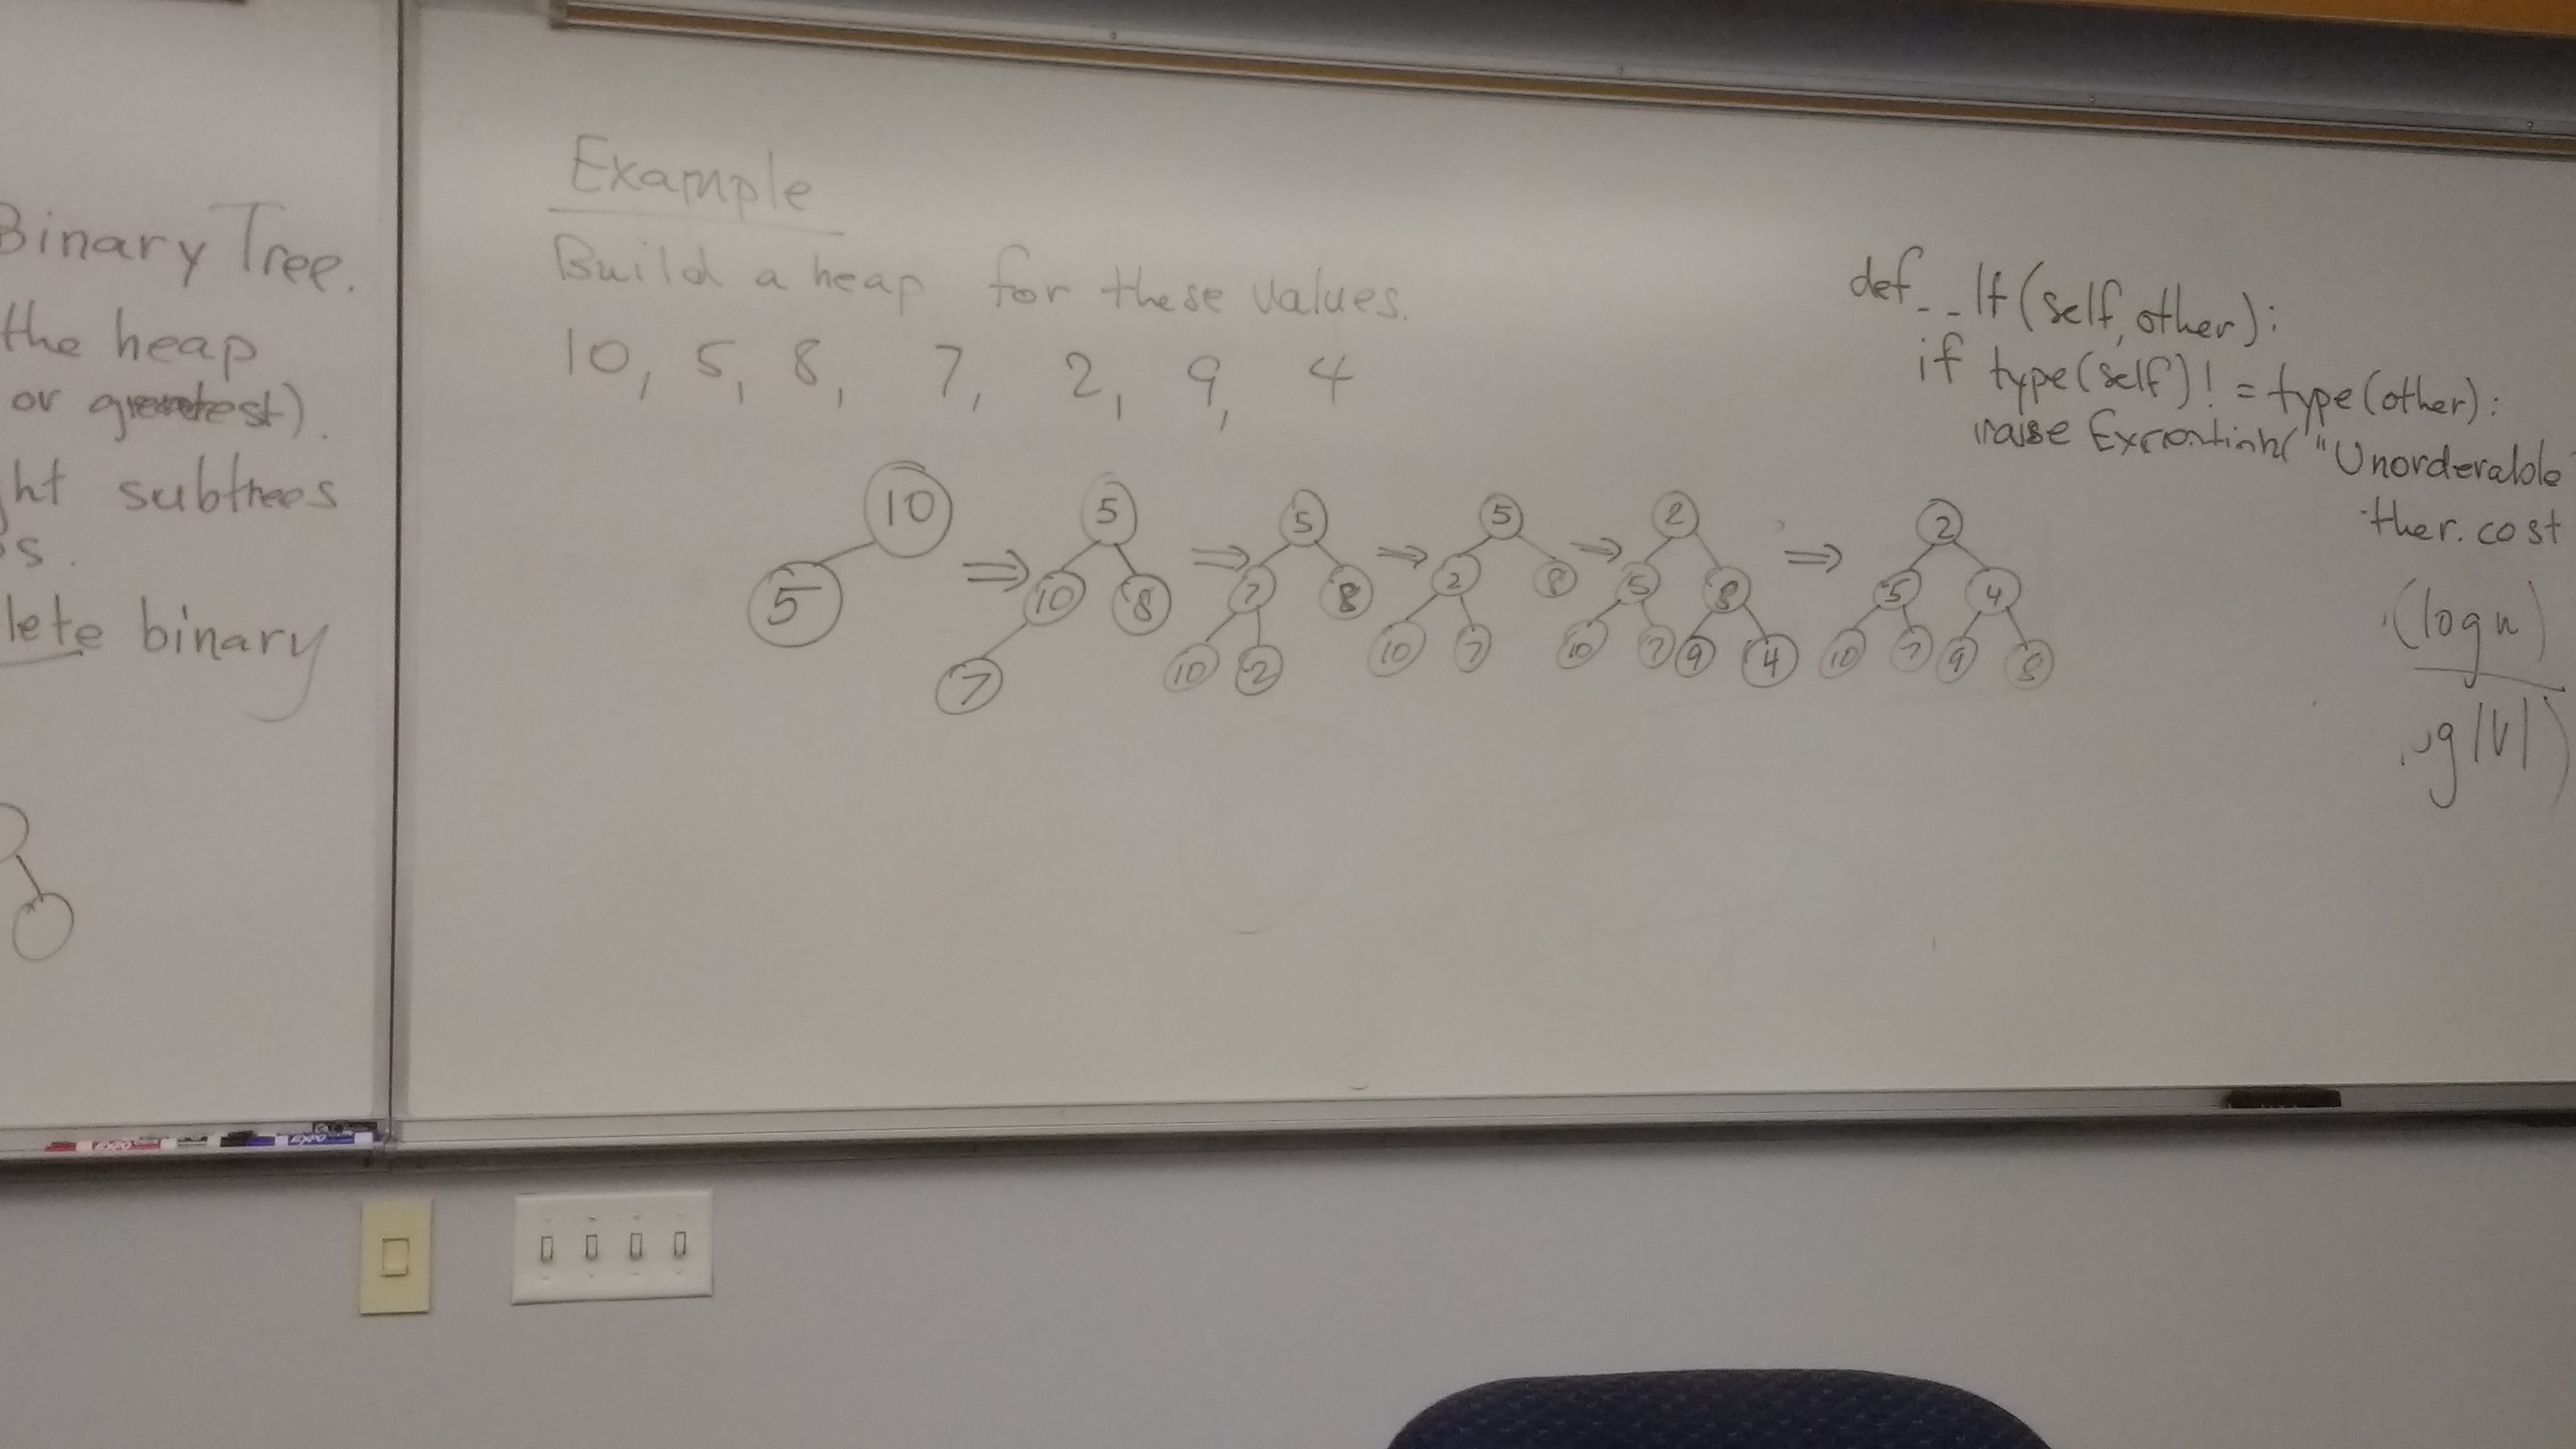 Binary Tree.
the heap
or greatest).
ht subtrees
s.
lete binary
Example
Build a heap for these values.
10, 5, 8, 7, 2, 9, 4
10
5
⇒
5
10 8
7
⇒
5
7 8
10 2
⇒
5
2 8
10 7
⇒
2
5 8
10 7 9 4
⇒
2
5 4
10 7 9 8
def __lt(self, other):
if type(self) != type(other):
raise Exception("Unorderable
ther.cost
(log n)
g|V|)
EXPO
EXPO